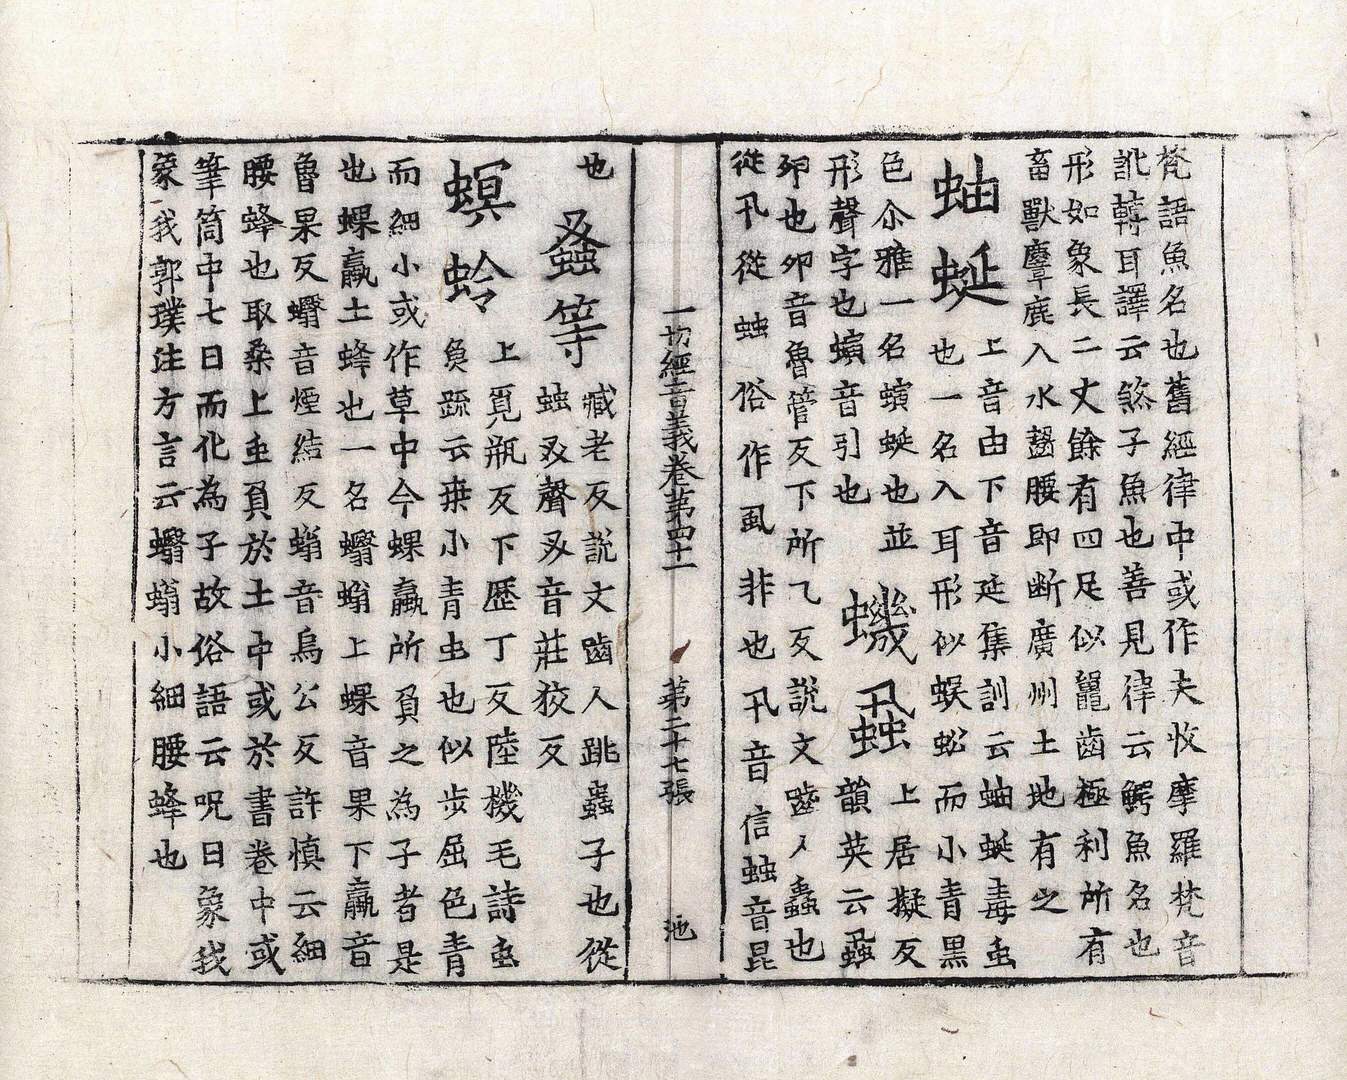 梵語魚名也舊經律中或作夫收摩羅梵音
訛轉耳譯云煞子魚也善見律云鰐魚名也
形如象長二丈餘有四足似鼉齒極利所有
畜獸麞鹿入水齧腰即断廣州土地有之
蚰蜒
上音由下音延集訓云蚰蜒毒䖝
也一名入耳形似蜈蚣而小青黑
色尒雅一名螾蜒也並
形聲字也螾音引也
蟣蝨
上居擬反
韻英云蝨
夘也夘音魯管反下所乙反說文齧人蟲也
從卂從䖵俗作虱非也卂音信䖵音昆
一切經音義卷第四十一 第二十七張 池
也
蚤等
臧老反說文齒人跳蟲子也從
䖵叉聲叉音莊狡反
螟蛉
上覓瓶反下歷丁反陸機毛詩䖝
魚疏云桒小青虫也似步屈色青
而細小或作草中今蜾蠃所負之為子者是
也蜾蠃土蜂也一名蠮螉上蜾音果下蠃音
魯果反蠮音煙結反螉音烏公反許慎云細
腰蜂也取桑上䖝負於土中或於書卷中或
筆筒中七日而化為子故俗語云呪曰象我
象我郭璞注方言云蠮螉小細腰蜂也